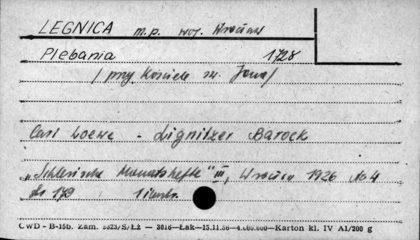 LEGNICA m.p. woj. Wrocław
Plebania 1728
/ przy Kościele św. Jana/
Carl Loewe - Lignitzer Barock
"Schlesische Monatshefte" III, Wrocław 1926 No 4
str 178 1 ilustr.
CWD - B-15b. Zam. 3823/S/ŁŻ — 3016—Łak—15.11.56—4.000.000—Karton kl. IV A1/200 g